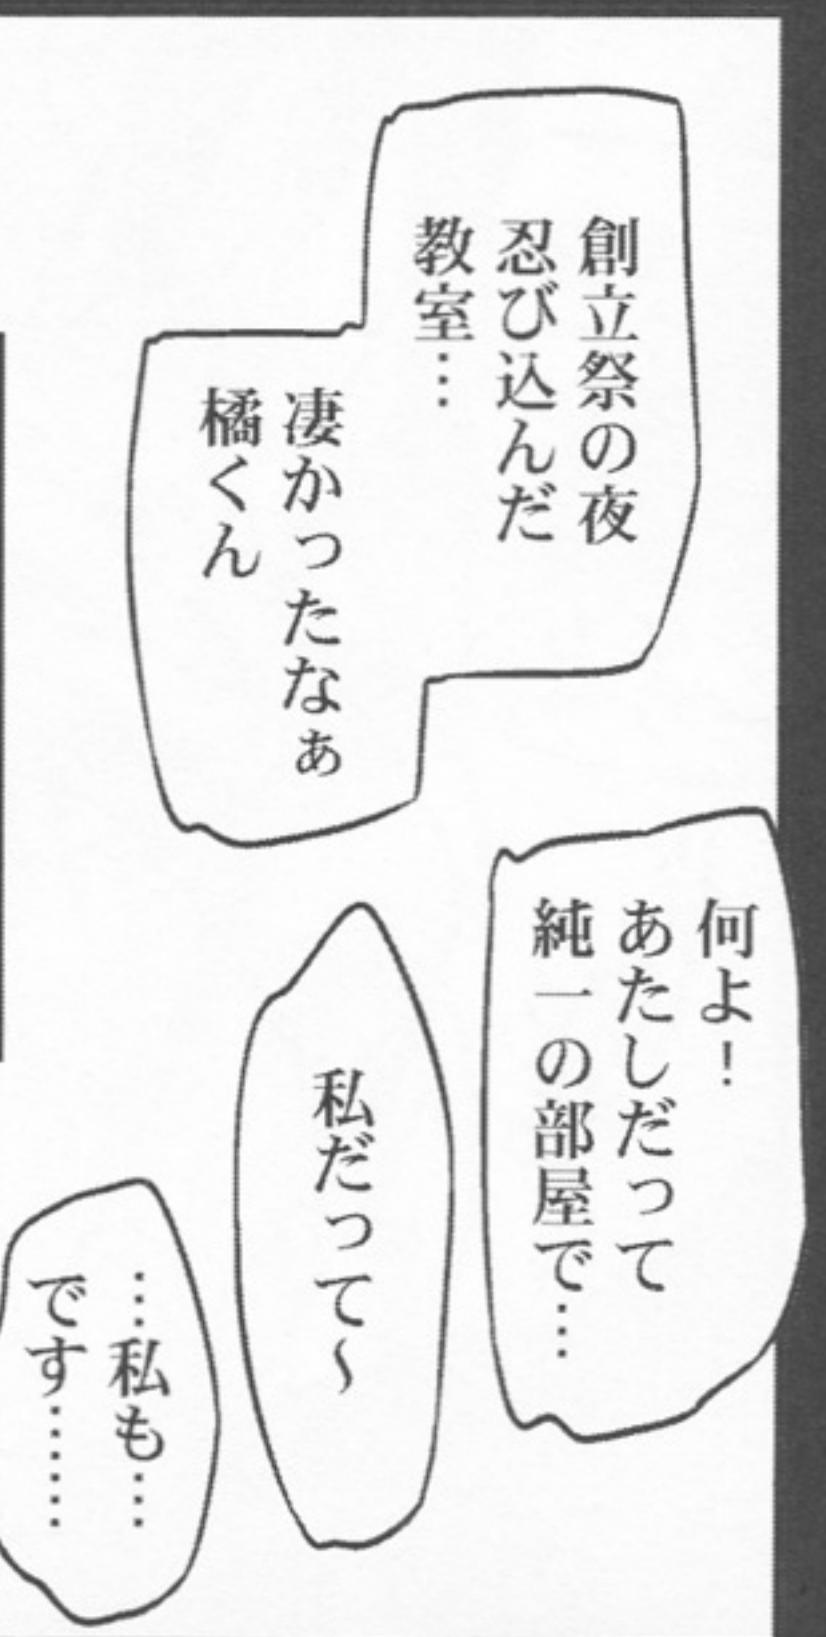 創立祭の夜
忍び込んだ
教室…
凄かったなぁ
橘くん
何よ！
あたしだって
純一の部屋で…
私だって～
…私も…
です……